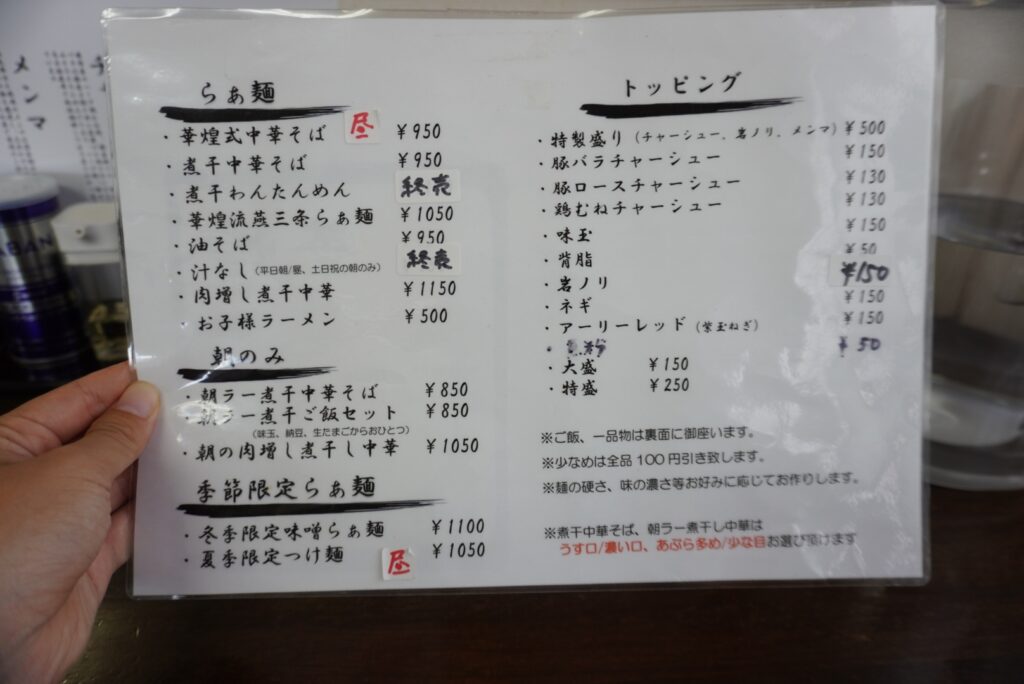 らぁ麺
・華煌式中華そば 昼 ￥950
・煮干中華そば ￥950
・煮干わんたんめん 終売
・華煌流燕三条らぁ麺 ￥1050
・油そば ￥950
・汁なし（平日朝/昼、土日祝の朝のみ） 終売
・肉増し煮干中華 ￥1150
・お子様ラーメン ￥500
朝のみ
・朝ラー煮干中華そば ￥850
・朝ラー煮干ご飯セット ￥850
（味玉、納豆、生たまごからおひとつ）
・朝の肉増し煮干し中華 ￥1050
季節限定らぁ麺
・冬季限定味噌らぁ麺 ￥1100
・夏季限定つけ麺 昼 ￥1050
トッピング
・特製盛り（チャーシュー、岩ノリ、メンマ） ￥500
・豚バラチャーシュー ￥150
・豚ロースチャーシュー ￥130
・鶏むねチャーシュー ￥130
・味玉 ￥150
・背脂 ￥50
・岩ノリ ￥150
・ネギ ￥150
・アーリーレッド（紫玉ねぎ） ￥150
・ ￥50
・大盛 ￥150
・特盛 ￥250
※ご飯、一品物は裏面に御座います。
※少なめは全品100円引き致します。
※麺の硬さ、味の濃さ等お好みに応じてお作りします。
※煮干中華そば、朝ラー煮干し中華は
うす口/濃い口、あぶら多め/少な目お選び頂けます
メンマ